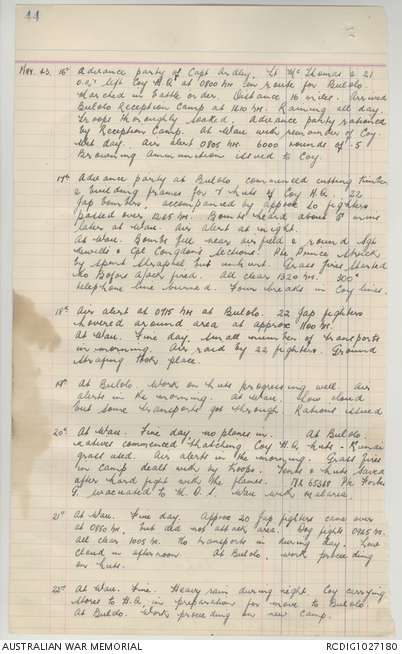 44
Nov. 43. 16th Advance party of Capt Ardley. Lt McThomas & 21
O.R's left Coy H.Q. at 0800 hrs en route for Bulolo
Marched in battle order. Distance 16 miles. Arrived
Bulolo Reception Camp at 1610 hrs. Raining all day.
Troops thoroughly soaked. Advance party rationed
by Reception Camp. At Wau with remainder of Coy
Wet day. Air alert 0805 hrs. 6000 rounds of .5
Browning Ammunition issued to Coy.
17th Advance party at Bulolo commenced cutting timber
& building frames for 7 huts of Coy H.Q. 22
Jap Bombers, accompanied by approx 60 fighters
passed over 1205 hrs. Bombs heard about 8 mins
later at Wau. Air alert at night.
At Wau. Bombs fell near airfield & round Sgt
& Cpl sections. Pte Prince struck
by spent shrapnel but unhurt. Grass fires started
No Bofors Ajack fired. All clear 1320 hrs. 300x
telephone line burned. Four breaks in Coy lines.
18th Air alert at 0915 hrs at Bulolo. 22 Jap fighters
hovered around area at approx 1100 hrs.
At Wau. Fine day. Small number of transports
in morning. Air raid by 22 fighters. Ground
strafing took place.
19th At Bulolo. Work on huts progressing well. Air
alerts in the morning. At Wau. Low cloud
but some transports got through. Rations issued
20th At Wau. Fine day no planes in. At Bulolo.
natives commenced thatching Coy H.Q. huts - Kunai
grass used. Air alerts in the morning. Grass fires
in camp dealt with by troops. Tents & huts saved
after hard fight with the flames. Pte Forbes
G. evacuated to M.D.S. Wau with malaria.
21st At Wau. Fine day. Approx 20 Jap fighters came over
at 0850 hrs, but did not attack area. Dog fights 0945 hrs
all clear 1005 hrs. No transports in during day. Low
cloud in afternoon. At Bulolo, work proceeding
on huts.
22nd At Wau. Fine. Heavy rain during night. Coy carrying
stores to H.Q. in preparation for move to Bulolo.
At Bulolo. Work proceeding on new camp.
AUSTRALIAN WAR MEMORIAL
RCDIG1027180